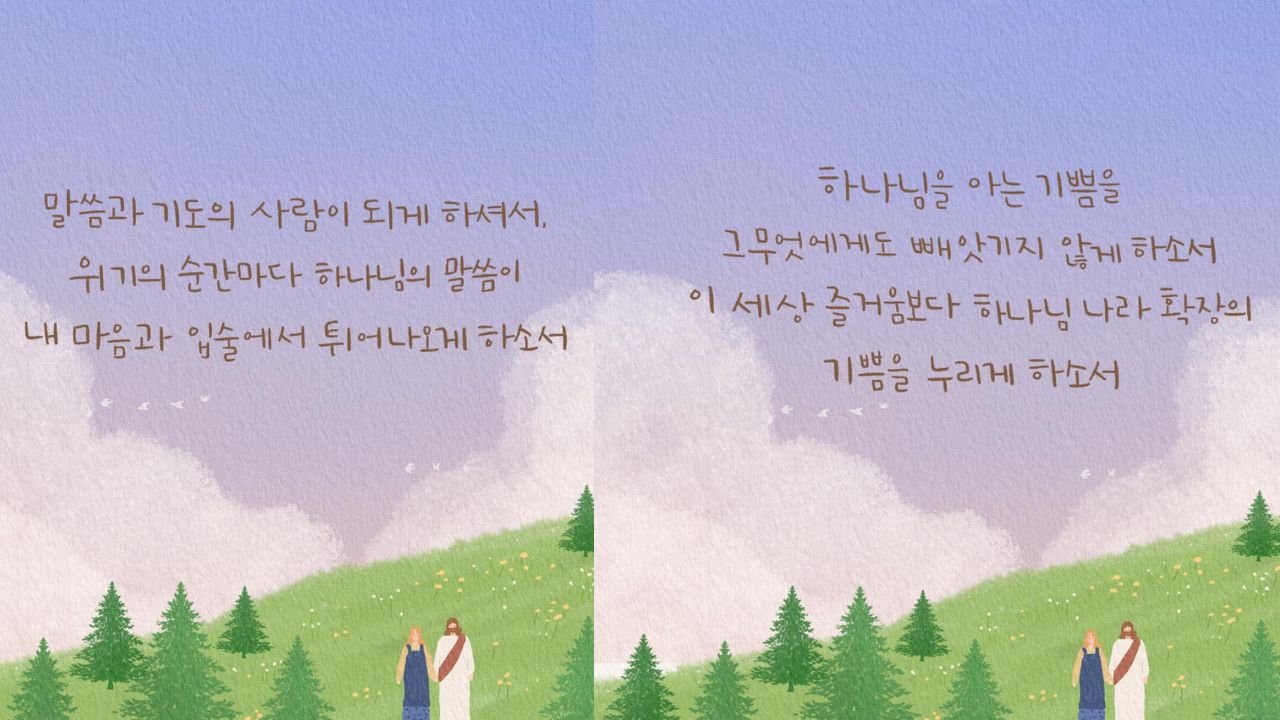 말씀과 기도의 사람이 되게 하셔서,
위기의 순간마다 하나님의 말씀이
내 마음과 입술에서 튀어나오게 하소서
하나님을 아는 기쁨을
그무엇에게도 빼앗기지 않게 하소서
이 세상 즐거움보다 하나님 나라 확장의
기쁨을 누리게 하소서